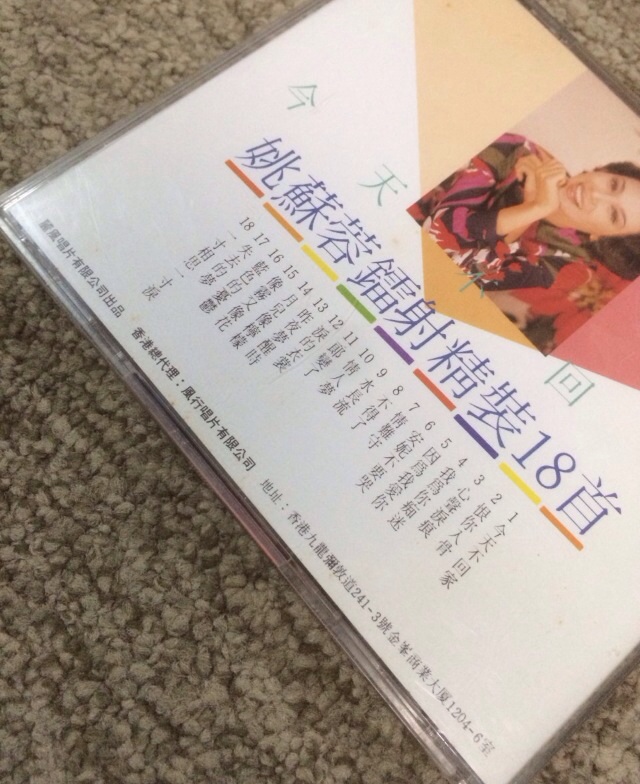 今天不回
姚蘇蓉鐳射精裝18首
1 今天不回家
2 恨你入骨
3 心聲淚痕
4 我為你痴迷
5 因為我愛你
6 安妮不要哭
7 情難守
8 不得了
9 水長流
10 情人夢
11 郎變了
12 淚的衣裳
13 昨夜夢醒時
14 月兒像檸檬
15 像霧又像花
16 藍色的憂鬱
17 失去的夢
18 一寸相思一寸淚
麗風唱片有限公司出品
香港總代理：風行唱片有限公司
地址：香港九龍彌敦道241-3號金峯商業大厦1204-6室